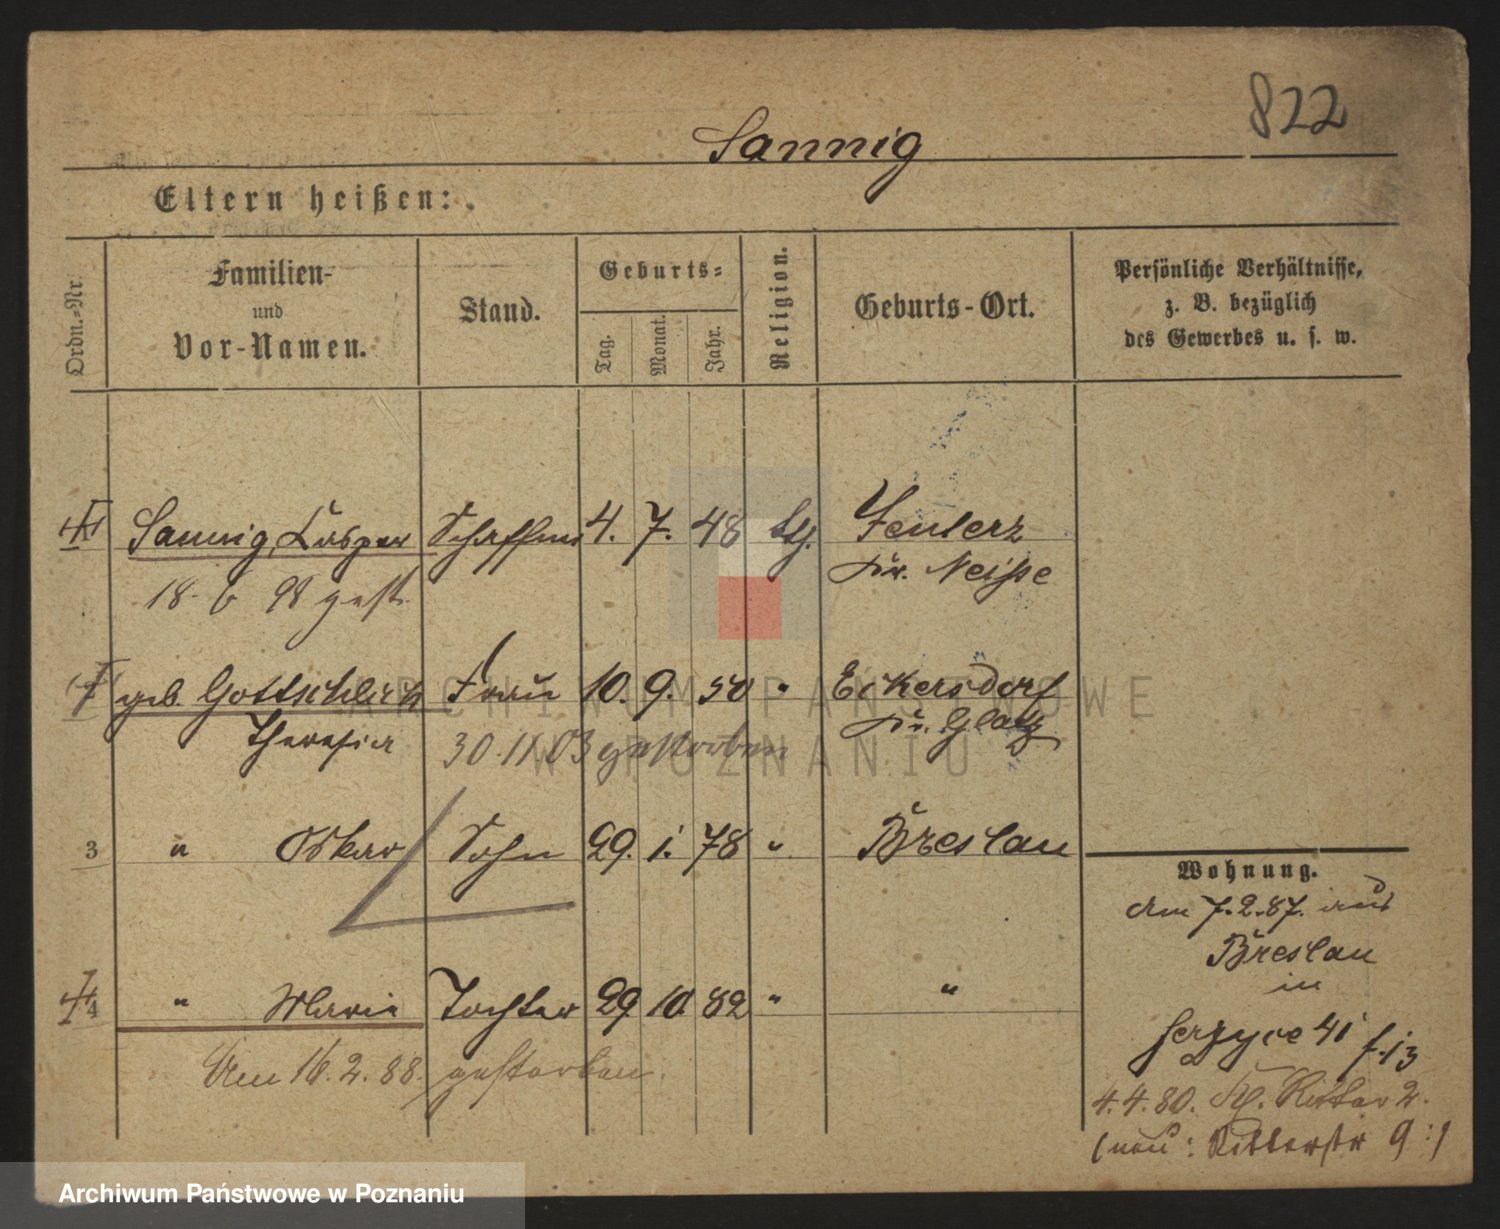 822
Sannig
Eltern heißen:
Ordn.-Nr.
Familien-
und
Vor-Namen.
Stand.
Geburts-
Tag.
Monat.
Jahr.
Religion.
Geburts-Ort.
Persönliche Verhältnisse,
z. B. bezüglich
des Gewerbes u. s. w.
Sannig, Casper Schaffner 4. 7. 48 ktl.
Kr. Neisse
18. 6 98 gest.
geb. Gottschlich Frau 10. 9. 50 " Eckersdorf
Theresia Kr. Glatz
30.11.03 gestorben
3 " Oskar Sohn 29. 1. 78 " Breslau
Wohnung.
am 7.2.87. aus
Breslau
in
4 " Marie Tochter 29 10 82 " "
Jerzyce 41
Am 16.2.88. gestorben.
4.4.80. Kl. Ritter 2.
(neu: Ritterstr 9
ARCHIWUM PAŃSTWOWE
W POZNANIU
Archiwum Państwowe w Poznaniu